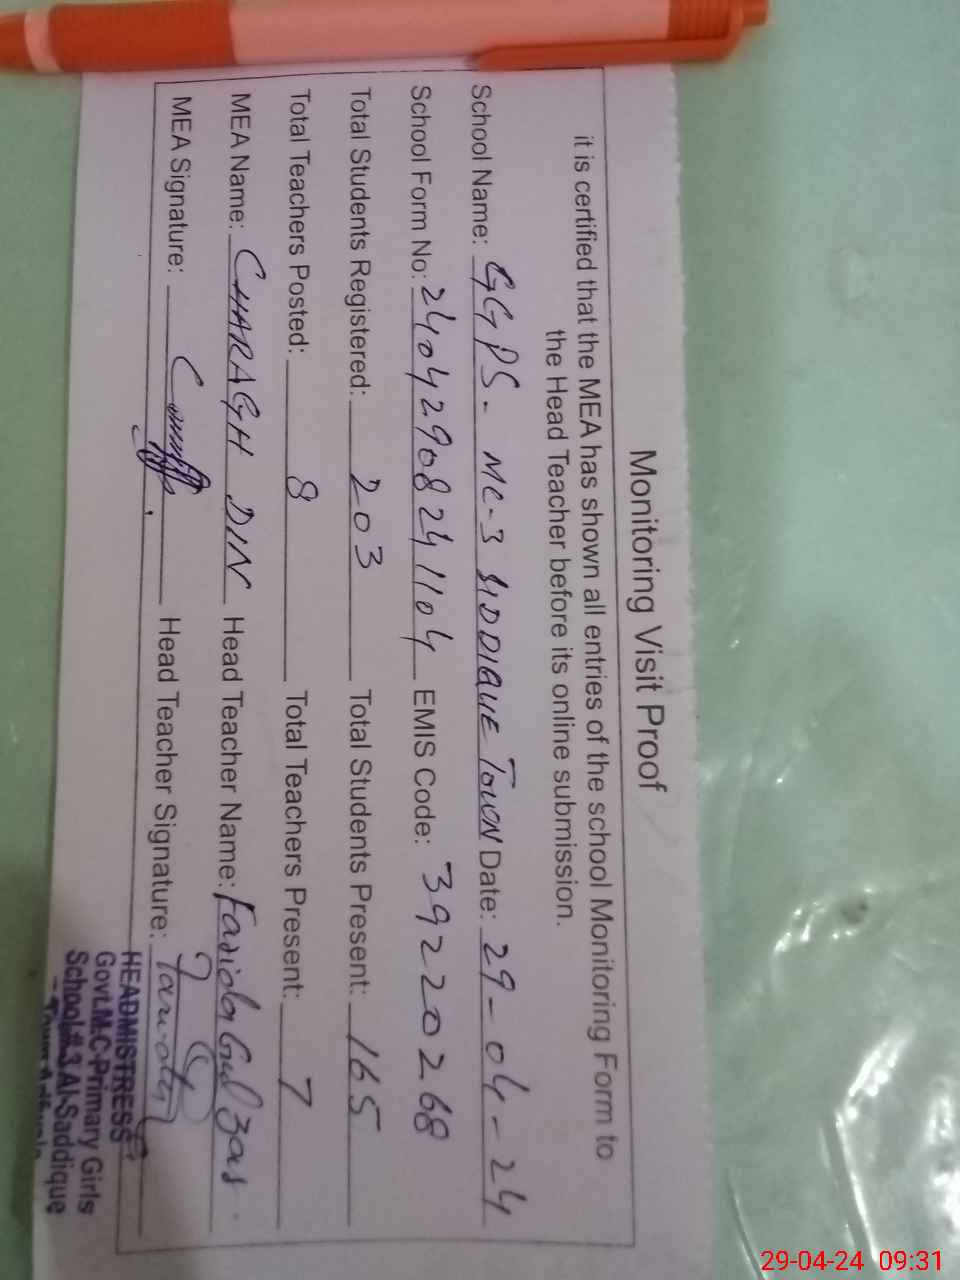 Monitoring Visit Proof
it is certified that the MEA has shown all entries of the school Monitoring Form to
the Head Teacher before its online submission.
School Name: GGPS- MC-3 SIDDIQUE TOWN Date: 29-04-24
School Form No: 24042908241104 EMIS Code: 39220268
Total Students Registered: 203 Total Students Present: 165
Total Teachers Posted: 8 Total Teachers Present: 7
MEA Name: CHARAGH DIN Head Teacher Name: Farida Gulzar.
MEA Signature: Head Teacher Signature: Farida
HEADMISTRESS
Govt.M.C-Primary Girls
School#3 Al-Saddique
Town
29-04-24 09:31